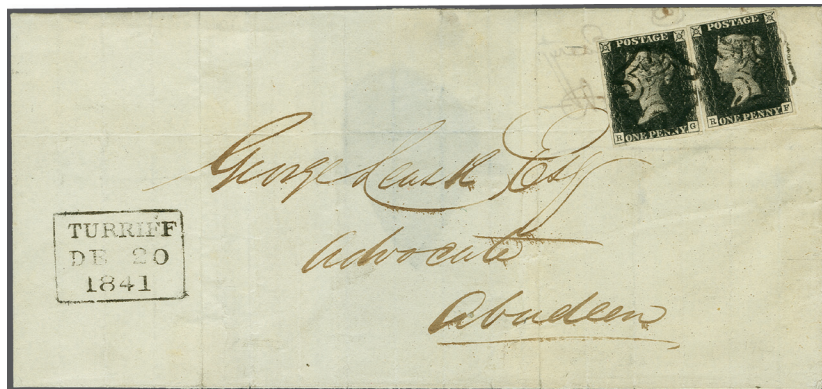 POSTAGE POSTAGE
R ONE PENNY G R ONE PENNY F
George Leask Esqr
Advocate
Aberdeen
TURRIFF
DE 20
1841